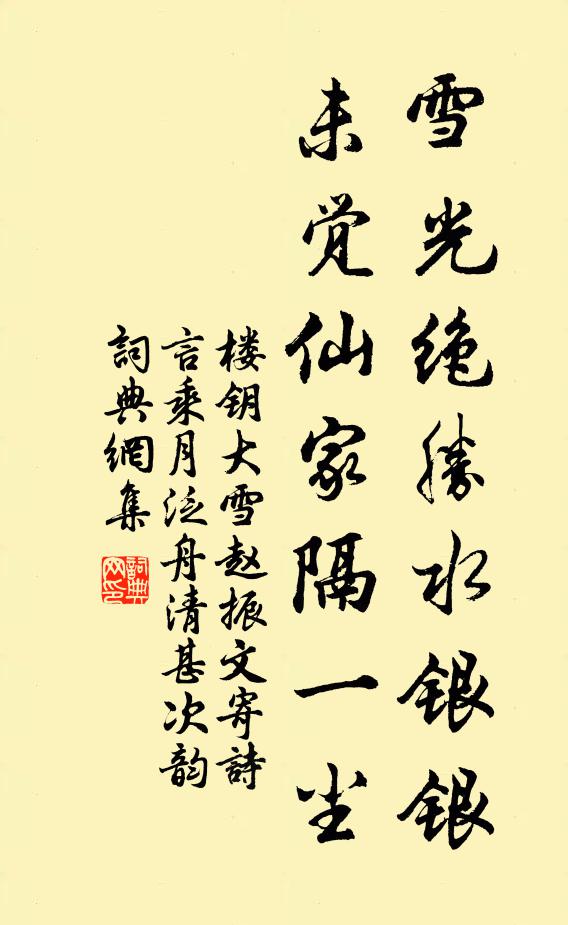 雪光绝勝水银银
未觉仙家隔一尘
楼钥大雪赵振文寄詩
言乘月泛舟清甚次韵
詞典網集
詞典
网印